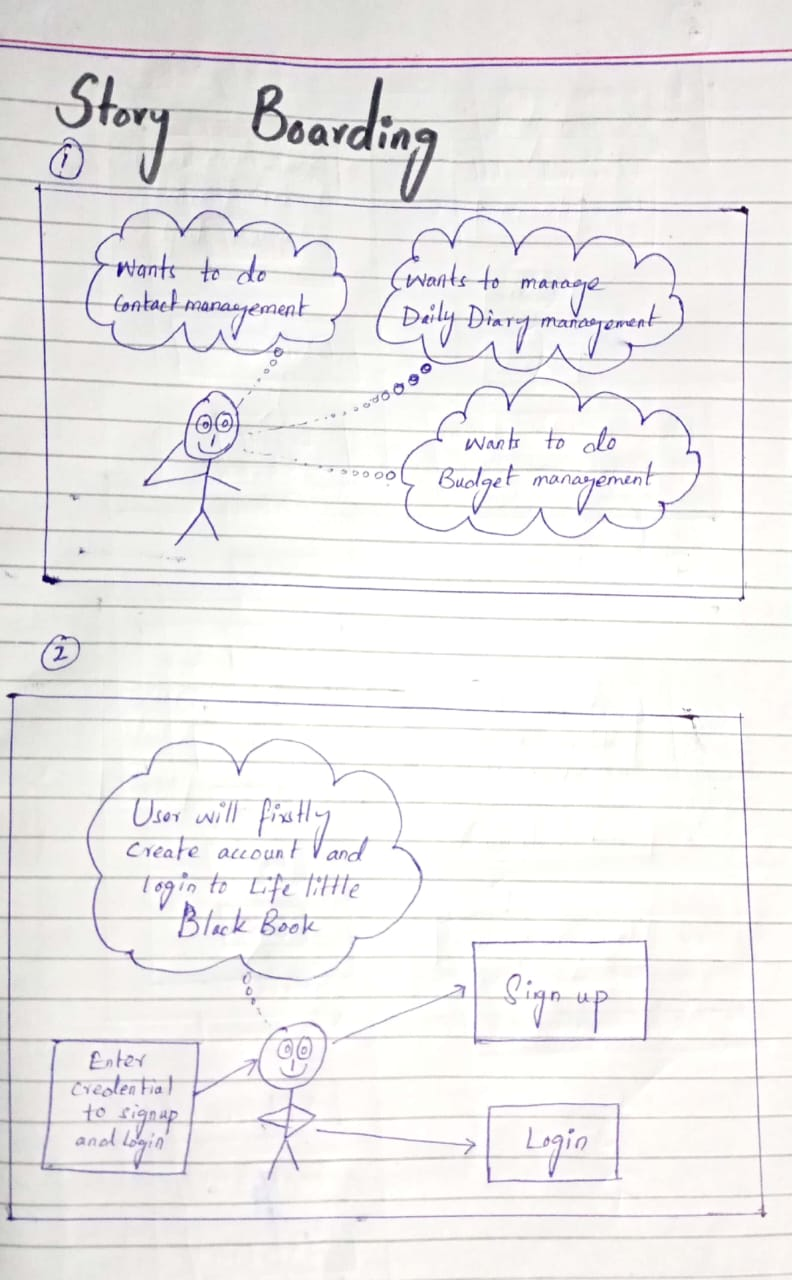 Story Boarding
1
Wants to do
Contact management
Wants to manage
Daily Diary management
Wants to do
Budget management
2
User will firstly
create account and
login to Life little
Black Book
Sign up
Enter
credential
to signup
and login
Login